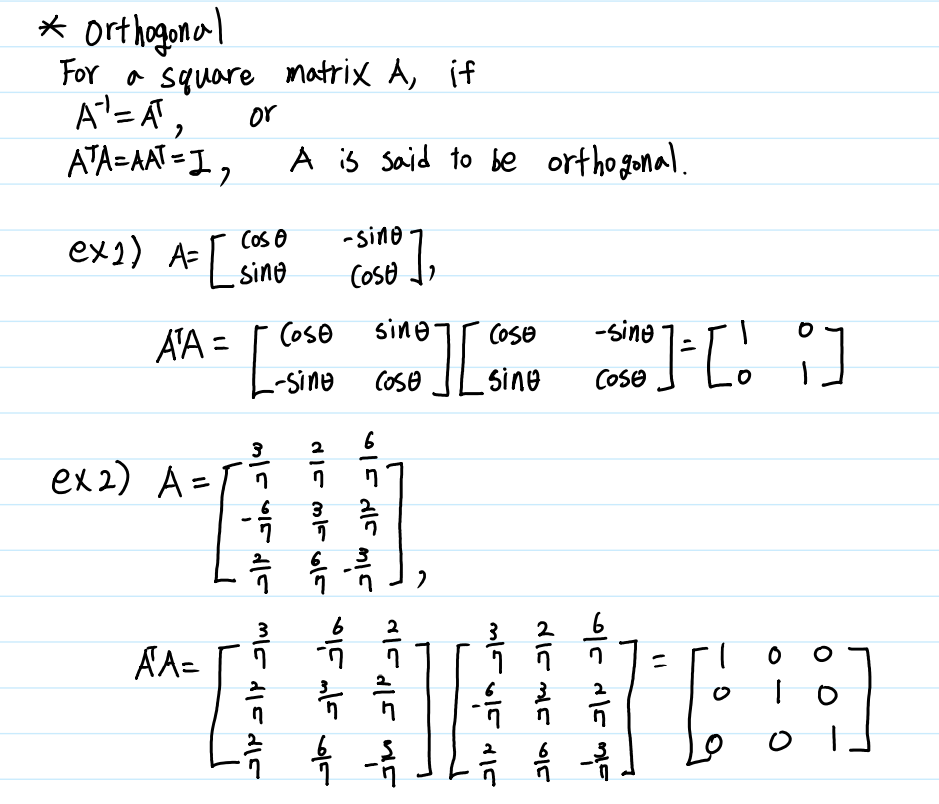 * Orthogonal
For a square matrix A, if
A⁻¹=Aᵀ, or
AᵀA=AAᵀ=I, A is said to be orthogonal.
ex1) A=[cosθ -sinθ
sinθ cosθ],
AᵀA = [cosθ sinθ][cosθ -sinθ]=[1 0
-sinθ cosθ][sinθ cosθ] [0 1]
ex2) A=[3/7 2/7 6/7
-6/7 3/7 2/7
2/7 6/7 -3/7],
AᵀA=[3/7 -6/7 2/7][3/7 2/7 6/7]=[1 0 0
2/7 3/7 2/7][-6/7 3/7 2/7] [0 1 0
2/7 6/7 -3/7][2/7 6/7 -3/7] [0 0 1]